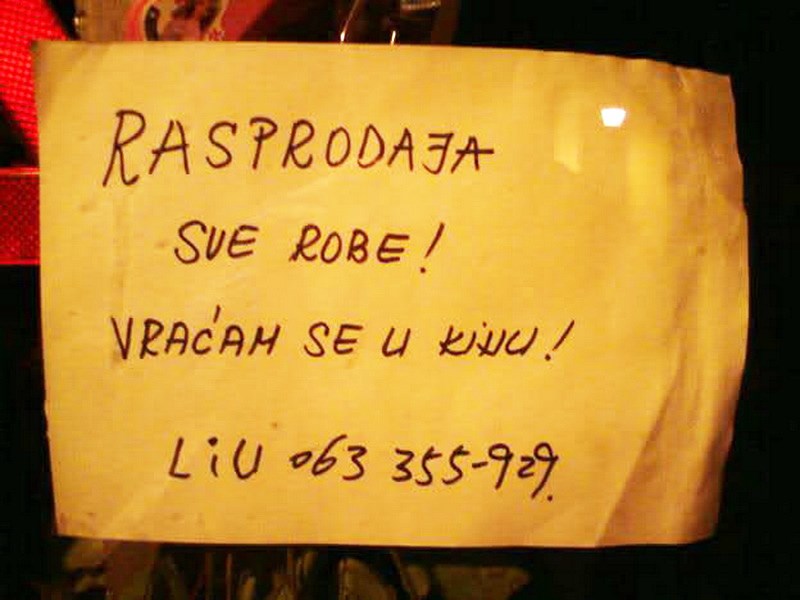 RASPRODAJA
SVE ROBE!
VRAĆAM SE U KiNU!
LiU 063 355-929.